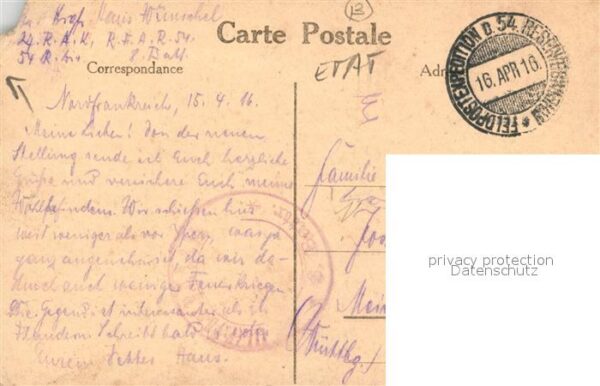 Carte Postale
Correspondance
Hans Wünschel
24. R.A.K., R.F.A.R. 54.
54 R. 
8. Batt.
ETAT
FELDPOSTEXPEDITION D. 54. RESERVEDIVISION
16.APR 16.
Nordfrankreich, 15.4.16.
Meine Lieben! Von der neuen
Stellung sende ich Euch herzliche
Grüße und versichere Euch meines
Wohlbefindens. Wir schießen hier
weit weniger als vor Ypern, was ja
ganz angenehm ist, da wir da-
durch auch weniger Feuer kriegen.
Die Gegend ist interessanter als in
Flandern. Schreibt bald wieder
Eurem Hans.
Familie
privacy protection
Datenschutz